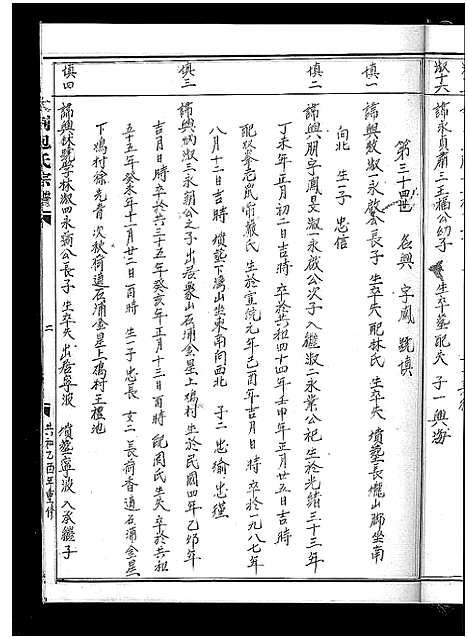 淑十六
諱永貞 淑三王福公幼子 生卒墓配失 子一 興海
第三十四世 名興 字鳳 號慎
慎一
諱興 淑一永 公長子 生卒失 配林氏 生卒失 墳墓長壠山腳坐南
向北 生一子 忠信
慎二
諱興朋 字鳳旻 淑一永 公次子 入繼淑二永業公祀 生於光緒三十三年
丁未年正月初二日吉時 卒於共和四十四年壬申年正月廿五日吉時
配 嚴氏 生於宣統元年己酉年吉月日時 卒於一九八七年
八月十二日吉時 墳墓下 山坐東南向西北 子二 忠 忠
慎三
諱興 淑三永 公之子 出居象山石浦金星上塢村 生於民國四年乙卯年
吉月日時 卒於共和三十五年癸亥年正月十三日酉時 配周氏 生失 卒於共和
五十五年癸未年十一月廿二日酉時 生一子 忠長 女二 長荷香適石浦金星
下塢村徐光青 次秋荷適石浦金星上塢村王禮池
慎四
諱興林 號學林 淑四永 公長子 生卒失 出居寧波 墳墓寧波 入承繼子
包氏宗譜
二
共和乙酉年重修